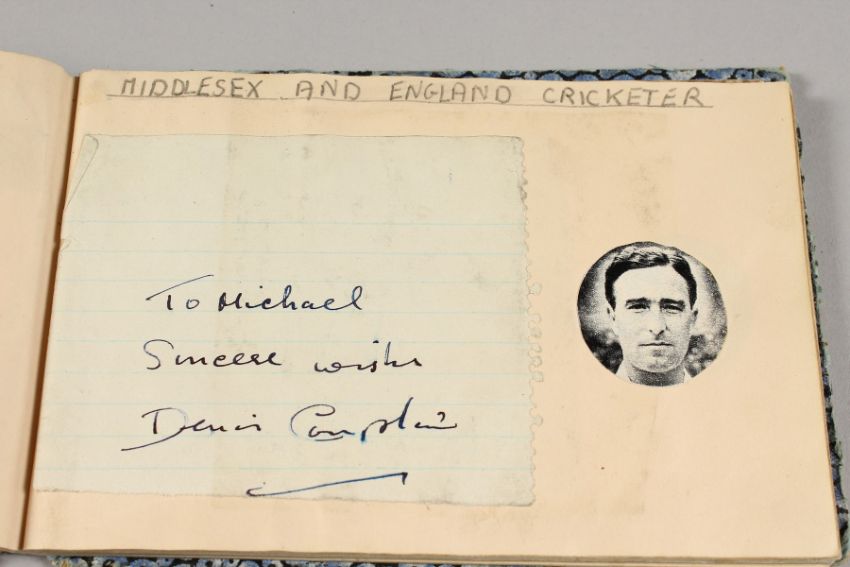 MIDDLESEX AND ENGLAND CRICKETER
To Michael
Sincere wishes
Denis Compton